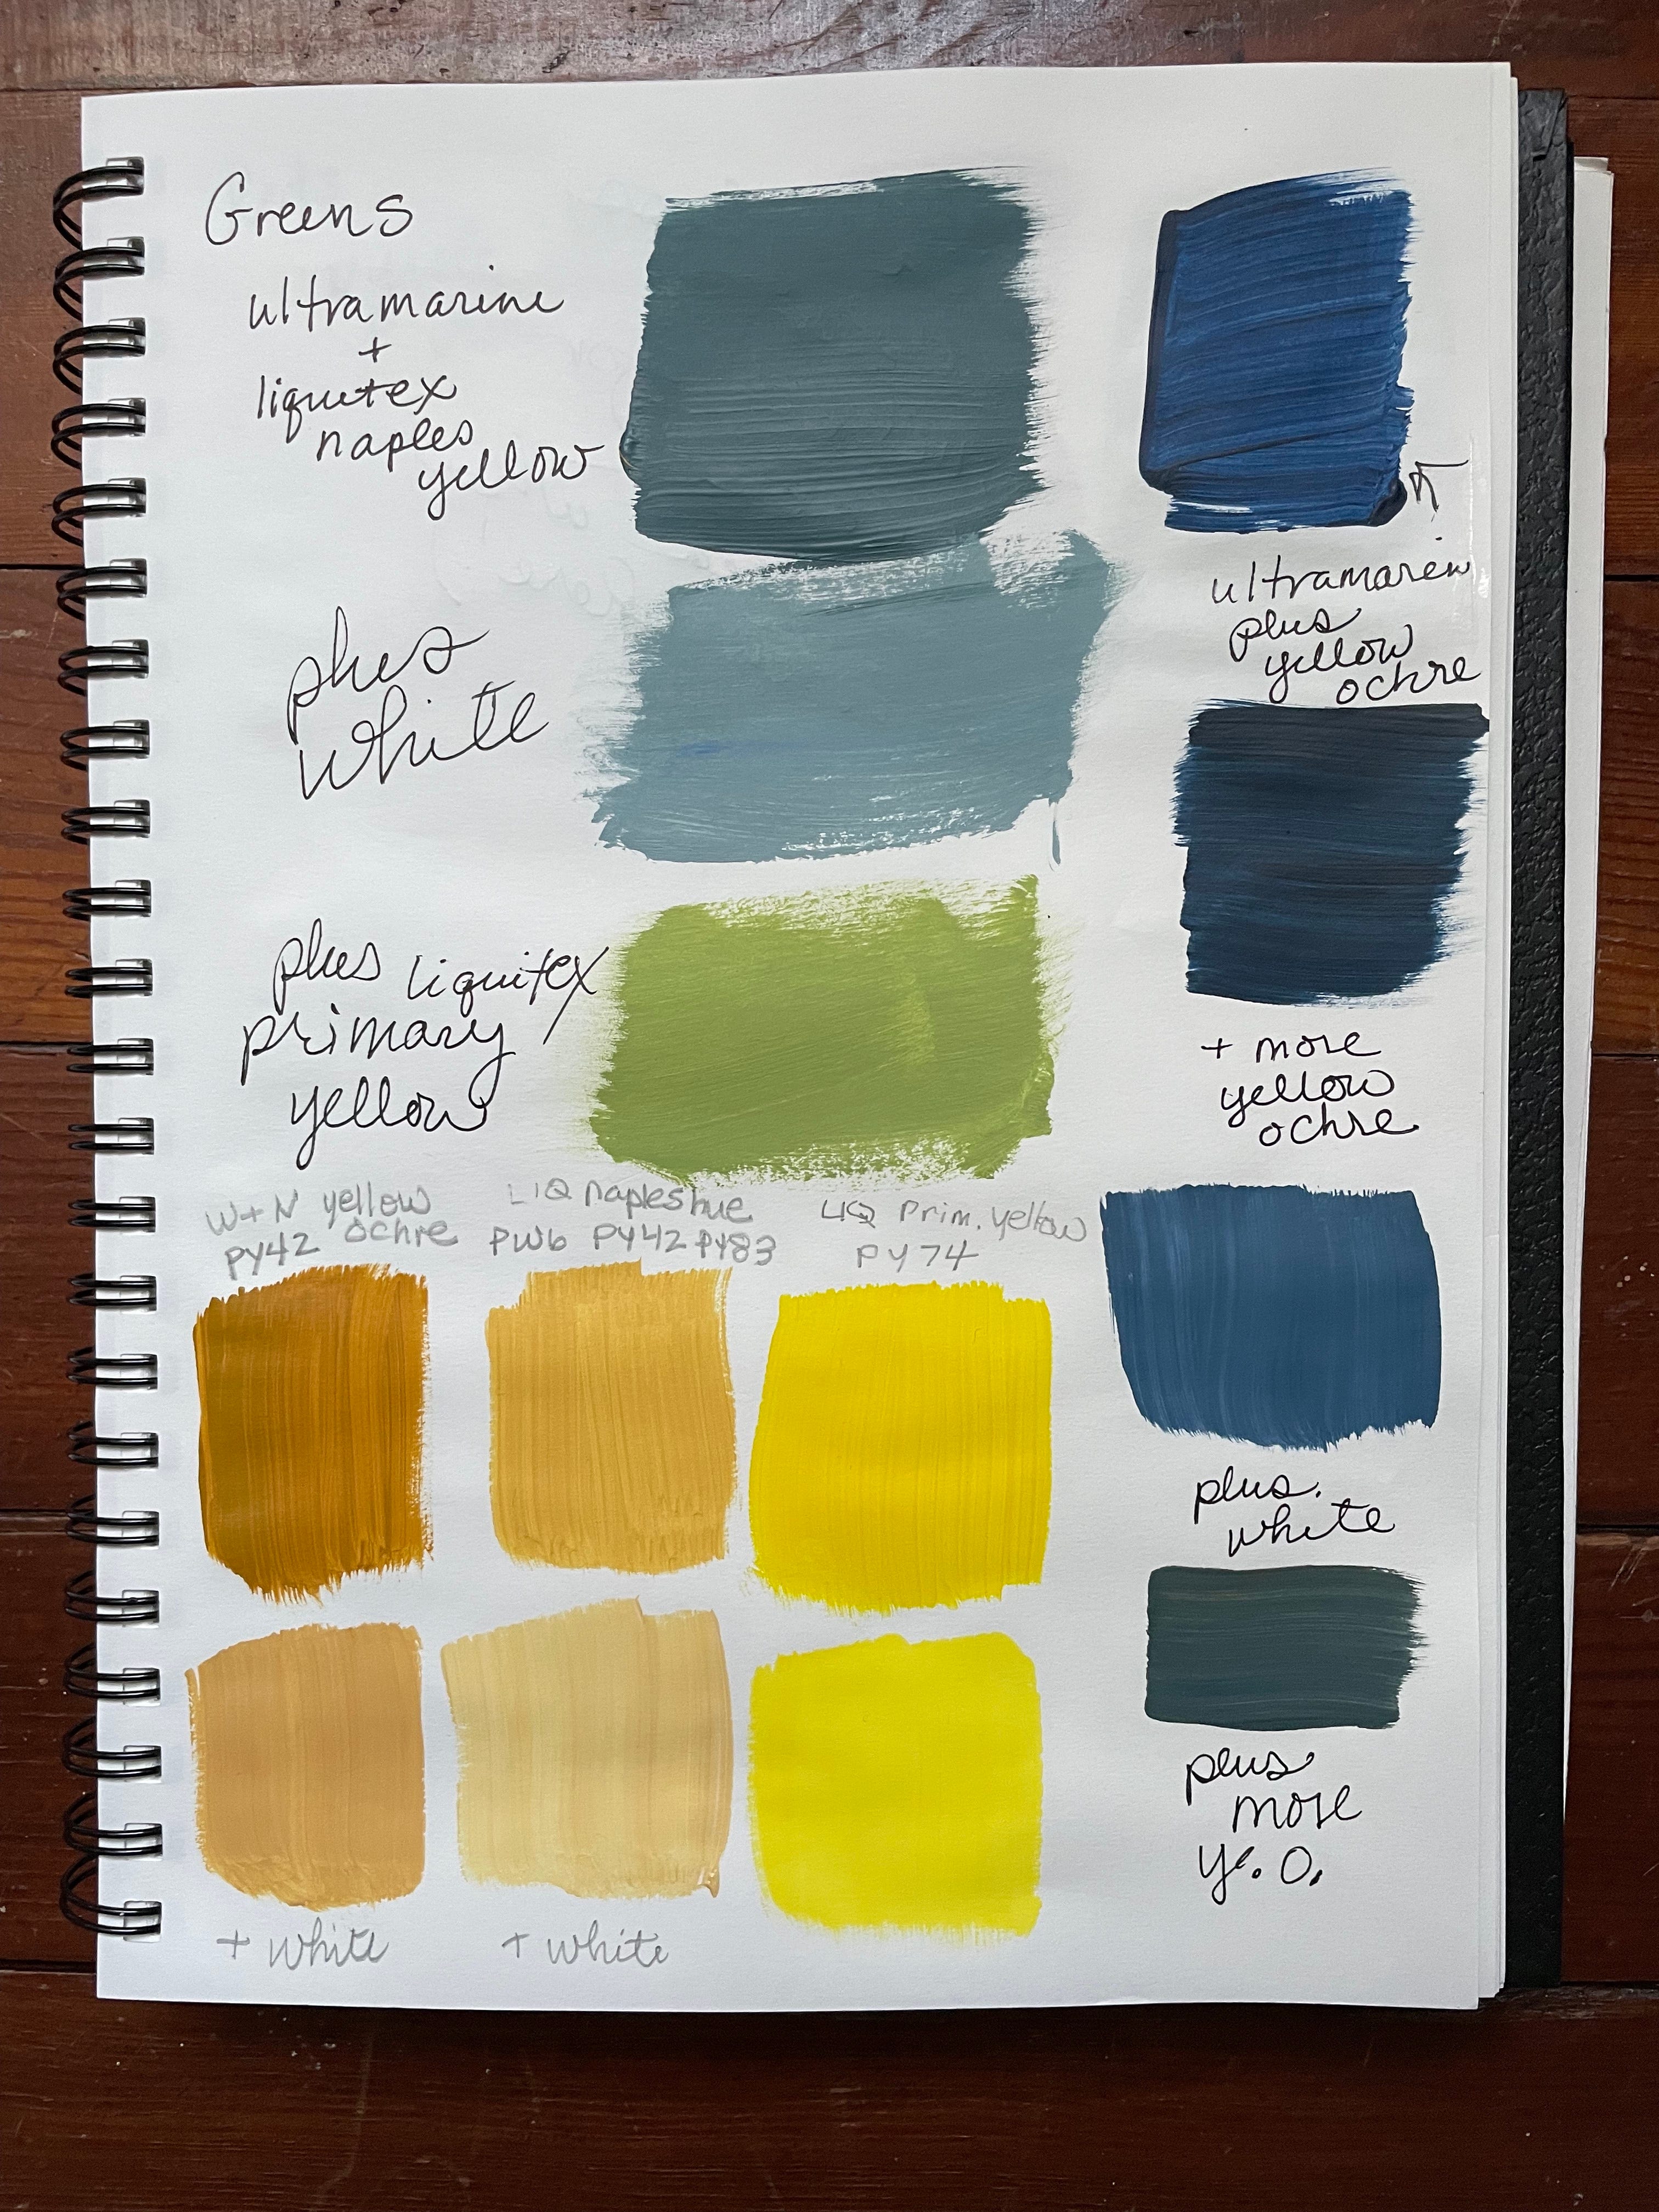 Greens
ultramarine
+
liquitex
naples
yellow
plus
white
plus liquitex
primary
yellow
W+N yellow
PY42 ochre
LIQ naples hue
PW6 PY42 PY83
LIQ Prim. yellow
PY74
+ white
+ white
ultramarin
plus
yellow
ochre
+ more
yellow
ochre
plus.
white
plus
more
ye. O.